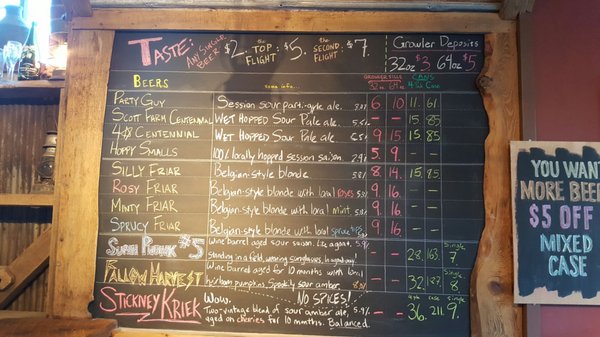 TASTE: ANY SINGLE BEER $2. THE TOP FLIGHT $5. THE SECOND FLIGHT $7.
GROWLER DEPOSITS
32oz $3. 64oz $5.
BEERS some info... GROWLER FILLS CANS
32oz. 64oz. 4pk Case
PARTY GUY Session sour parti-gyle ale. 6 10 11. 61
SCOTT FARM CENTENNIAL WET HOPPED Sour Pale ale. – – 15. 85
CENTENNIAL WET HOPPED Sour Pale ale 9 15 15. 85
HOPPY SMALLS 100% locally hopped session saison. 5. 9. – –
SILLY FRIAR Belgian-style blonde 8. 14. 15. 85
ROSY FRIAR Belgian-style blonde with local roses 9. 16. – –
MINTY FRIAR Belgian-style blonde with local mint. 9. 16. – –
SPRUCY FRIAR Belgian-style blonde with local spruce 9. 16. – –
#5 Wine barrel aged sour saison. 5.9% – – 28. 163. Single 7
standing in a field, wearing sunglasses,
FALLOW HARVEST Wine Barreled aged for 10 months with local – – 32. 187. Single 8.
heirloom pumpkins. Spontily sour amber.
NO SPICES!
STICKNEY KRIEK Wow. 4pk case single
Two-vintage blend of sour amber ale, 5.9% – – 36. 211. 9.
aged on cherries for 10 months. Balanced.
YOU WANT
MORE BEER
$5 OFF
MIXED
CASE